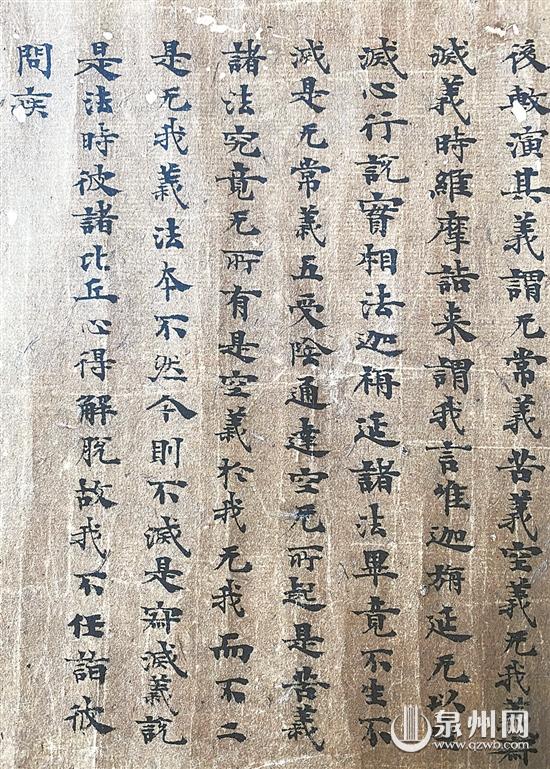 後敷演其義謂无常義苦義空義无我義寂
滅義時維摩詰来謂我言唯迦旃延无以
滅心行說實相法迦旃延諸法畢竟不生不
滅是无常義五受陰通達空无所起是苦義
諸法究竟无所有是空義於我无我而不二
是无我義法本不然今則不滅是寂滅義說
是法時彼諸比丘心得解脫故我不任詣彼
問疾
泉州网
www.qzwb.com